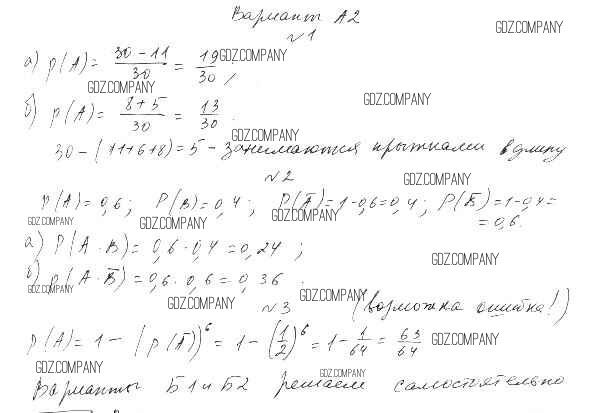 Вариант А2
GDZ.COMPANY
№1
а) p(A) = (30-11)/30 = 19/30,
GDZ.COMPANY
GDZ.COMPANY
GDZ.COMPANY
б) p(A) = (8+5)/30 = 13/30.
GDZ.COMPANY
30-(11+6+8)=5 - занимаются прыжками в длину
№2
GDZ.COMPANY
p(A)=0,6; P(B)=0,4; P(A̅)=1-0,6=0,4; P(B̅)=1-0,4=
=0,6.
GDZ.COMPANY
GDZ.COMPANY
GDZ.COMPANY
а) P(A·B)=0,6·0,4=0,24;
GDZ.COMPANY
б) p(A·B̅)=0,6·0,6=0,36.
GDZ.COMPANY
GDZ.COMPANY
GDZ.COMPANY
№3 (возможна ошибка!)
p(A)=1-(p(A̅))⁶=1-(1/2)⁶=1-1/64=63/64
GDZ.COMPANY
GDZ.COMPANY
GDZ.COMPANY
Варианты Б1 и Б2 решаем самостоятельно